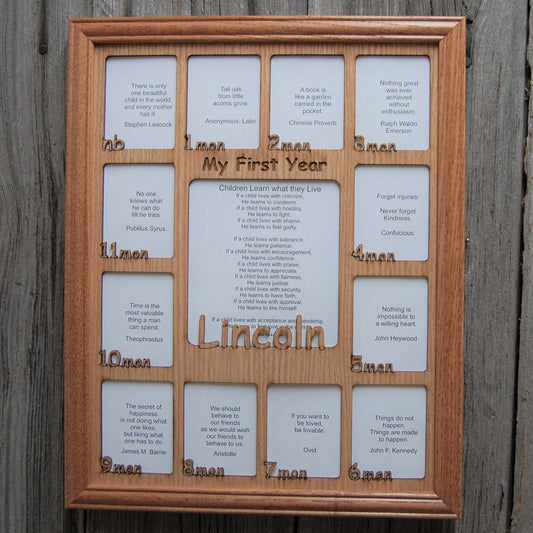 There is only
one beautiful
child in the world,
and every mother
has it.
Stephen Leacock
nb
Tall oak
from little
acorns grow.
Anonymous: Latin
1mon
A book is
like a garden
carried in the
pocket.
Chinese Proverb
2mon
Nothing great
was ever
achieved
without
enthusiasm.
Ralph Waldo
Emerson
3mon
My First Year
Children Learn what they Live
If a child lives with criticism,
He learns to condemn.
If a child lives with hostility,
He learns to fight.
If a child lives with shame,
He learns to feel guilty.
If a child lives with tolerance,
He learns patience.
If a child lives with encouragement,
He learns confidence.
If a child lives with praise,
He learns to appreciate.
If a child lives with fairness,
He learns justice.
If a child lives with security,
He learns to have faith.
If a child lives with approval,
He learns to like himself.
If a child lives with acceptance and friendship,
Lincoln
No one
knows what
he can do
till he tries
Publilius Syrus
11mon
Forget injuries:
Never forget
Kindness.
Confucious
4mon
Time is the
most valuable
thing a man
can spend.
Theophrastus
10mon
Nothing is
impossible to
a willing heart.
John Heywood
5mon
The secret of
happiness
is not doing what
one likes,
but liking what
one has to do
James M. Barrie
9mon
We should
behave to
our friends
as we would wish
our friends to
behave to us.
Aristotle
8mon
If you want to
be loved,
be lovable.
Ovid
7mon
Things do not
happen.
Things are made
to happen.
John F. Kennedy
6mon